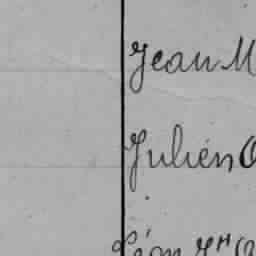 Jean M
Julien O
Léon